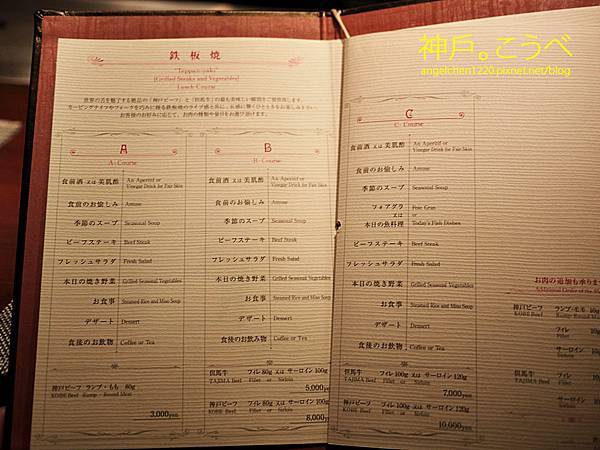 神戶。こうべ
angelchen1220.pixnet.net/blog
鉄板焼
"Teppan-yaki"
(Grilled Steaks and Vegetables)
Lunch Course
A
A- Course
食前酒 又は 美肌酢 An Aperitif or Vinegar Drink for Fair Skin
食前のお愉しみ Amuse
季節のスープ Seasonal Soup
ビーフステーキ Beef Steak
フレッシュサラダ Fresh Salad
本日の焼き野菜 Grilled Seasonal Vegetables
お食事 Steamed Rice and Miso Soup
デザート Dessert
食後のお飲物 Coffee or Tea
神戸ビーフ ランプ・もも 80g
KOBE Beef Rump・Round Meat
3,000yen
B
B- Course
食前酒 又は 美肌酢 An Aperitif or Vinegar Drink for Fair Skin
食前のお愉しみ Amuse
季節のスープ Seasonal Soup
ビーフステーキ Beef Steak
フレッシュサラダ Fresh Salad
本日の焼き野菜 Grilled Seasonal Vegetables
お食事 Steamed Rice and Miso Soup
デザート Dessert
食後のお飲み物 Coffee or Tea
但馬牛 フィレ 80g 又は サーロイン 100g
TAJIMA Beef Fillet or Sirloin
5,000yen
神戸ビーフ フィレ 80g 又は サーロイン 100g
KOBE Beef Fillet or Sirloin
8,000yen
C
C- Course
食前酒 又は 美肌酢 An Aperitif or Vinegar Drink for Fair Skin
食前のお愉しみ Amuse
季節のスープ Seasonal Soup
フォアグラ Foie Gras
又は or
本日の魚料理 Today's Fish Dishes
ビーフステーキ Beef Steak
フレッシュサラダ Fresh Salad
本日の焼き野菜 Grilled Seasonal Vegetables
お食事 Steamed Rice and Miso Soup
デザート Dessert
食後のお飲物 Coffee or Tea
但馬牛 フィレ 100g 又は サーロイン 120g
TAJIMA Beef Fillet or Sirloin
7,000yen
神戸ビーフ フィレ 100g 又は サーロイン 120g
KOBE Beef Fillet or Sirloin
10,000yen
お肉の追加も承りま
神戸ビーフ ランプ・モモ
KOBE Beef Rump・Round Meat
フィレ
Fillet
サーロイン
Sirloin
但馬牛 フィレ
TAJIMA Beef Fillet
サーロイン
Sirloin